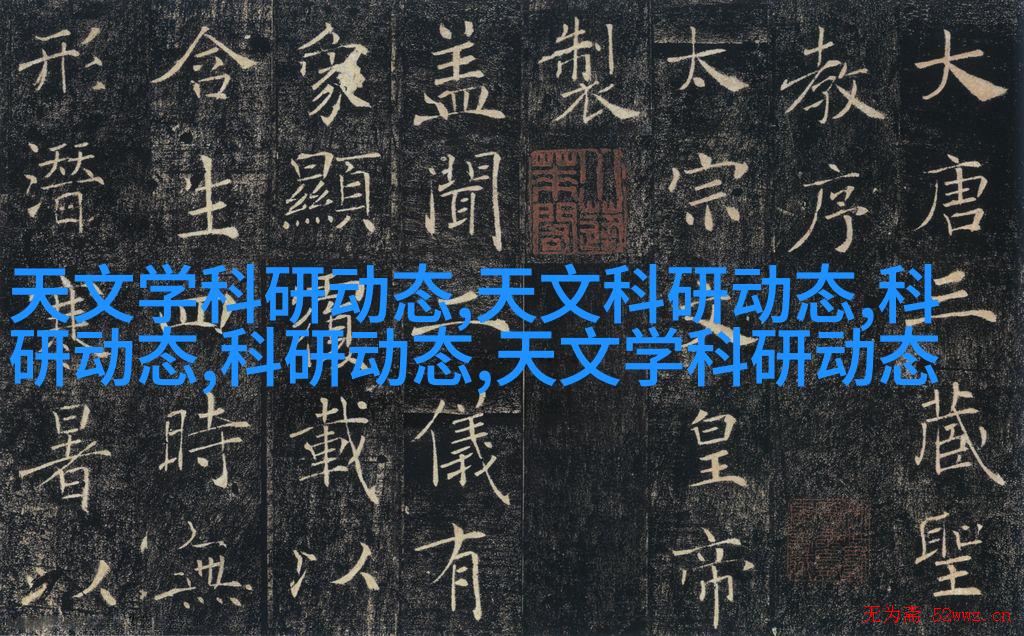 大唐三藏聖
教序
太宗皇帝
製
盖聞二儀有
象顯覆載以
含生四時無
形潛寒暑以
天文学科研动态,天文科研动态,科
研动态,科研动态,天文学科研动态
无为斋 52wwz.cn